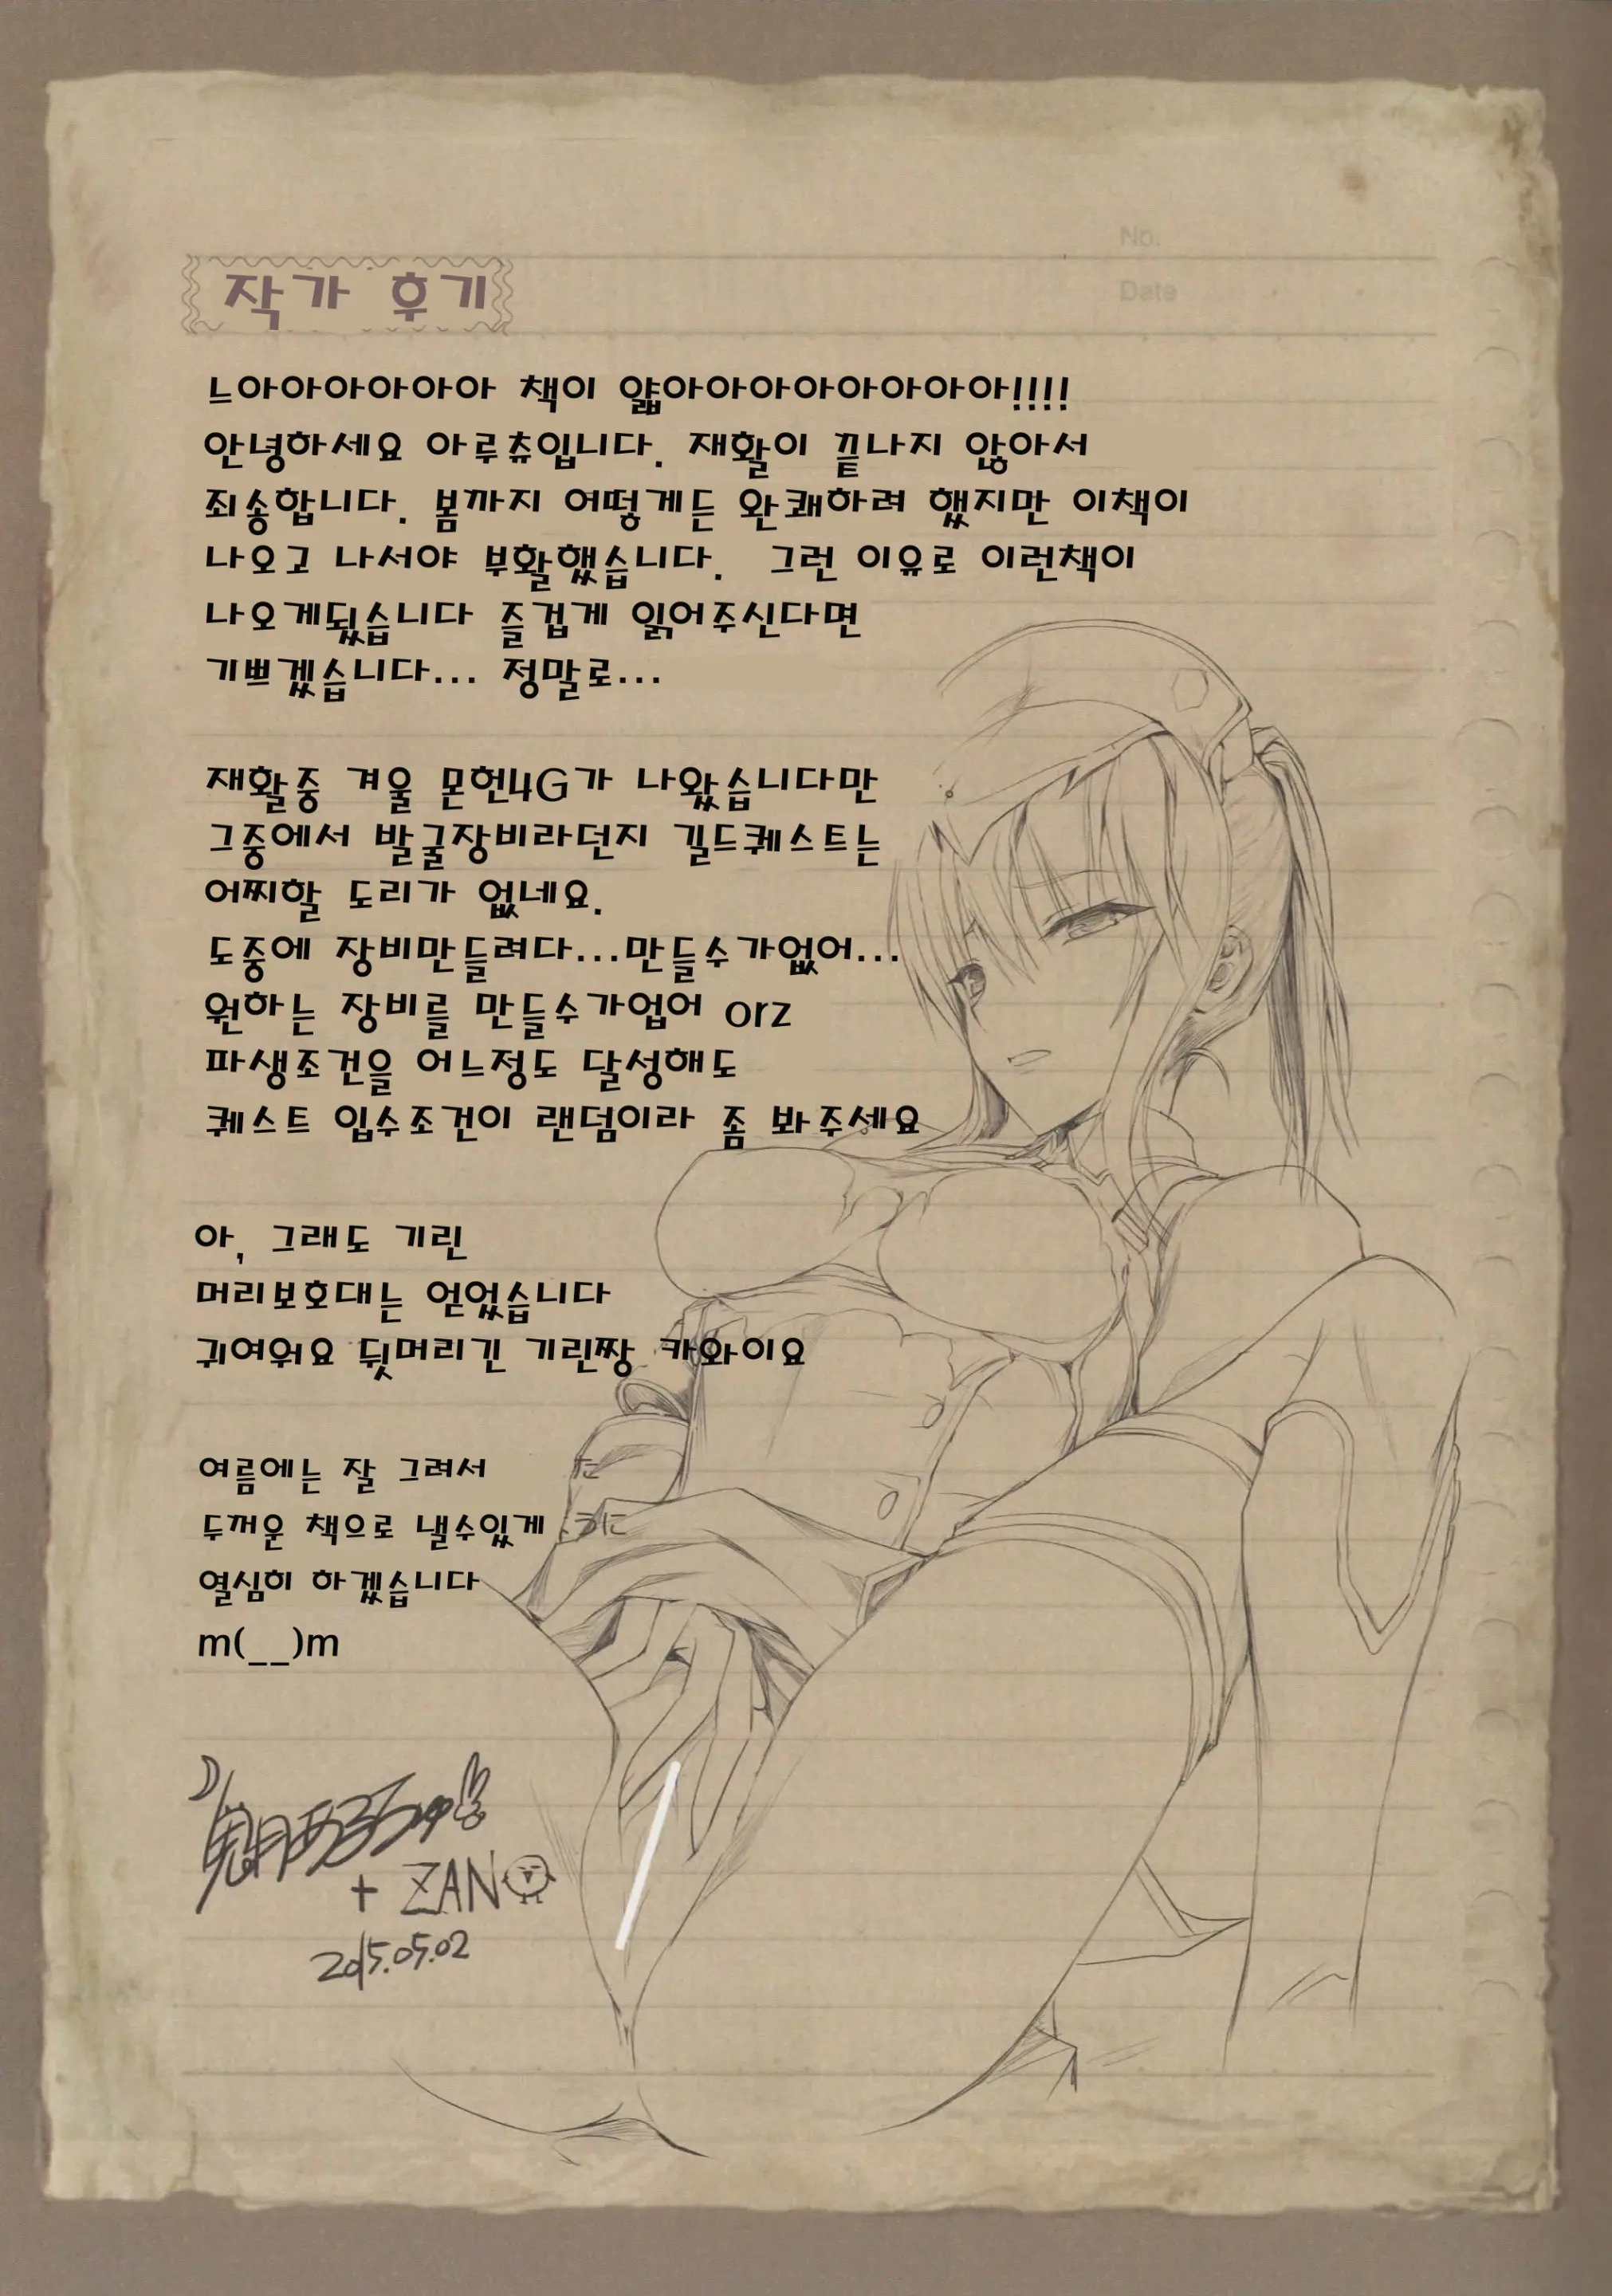 No.
Date
작가 후기
느아아아아아아 책이 얇아아아아아아아아아!!!!
안녕하세요 아루츄입니다. 재활이 끝나지 않아서
죄송합니다. 봄까지 어떻게든 완쾌하려 했지만 이책이
나오고 나서야 부활했습니다. 그런 이유로 이런책이
나오게됬습니다 즐겁게 읽어주신다면
기쁘겠습니다... 정말로...
재활중 겨울 몬헌4G가 나왔습니다만
그중에서 발굴장비라던지 길드퀘스트는
어찌할 도리가 없네요.
도중에 장비만들려다...만들수가없어...
원하는 장비를 만들수가업어 orz
파생조건을 어느정도 달성해도
퀘스트 입수조건이 랜덤이라 좀 봐주세요
아, 그래도 기린
머리보호대는 얻었습니다
귀여워요 뒷머리긴 기린짱 카와이요
여름에는 잘 그려서
두꺼운 책으로 낼수있게
열심히 하겠습니다
m(__)m
+ ZAN
2015.05.02